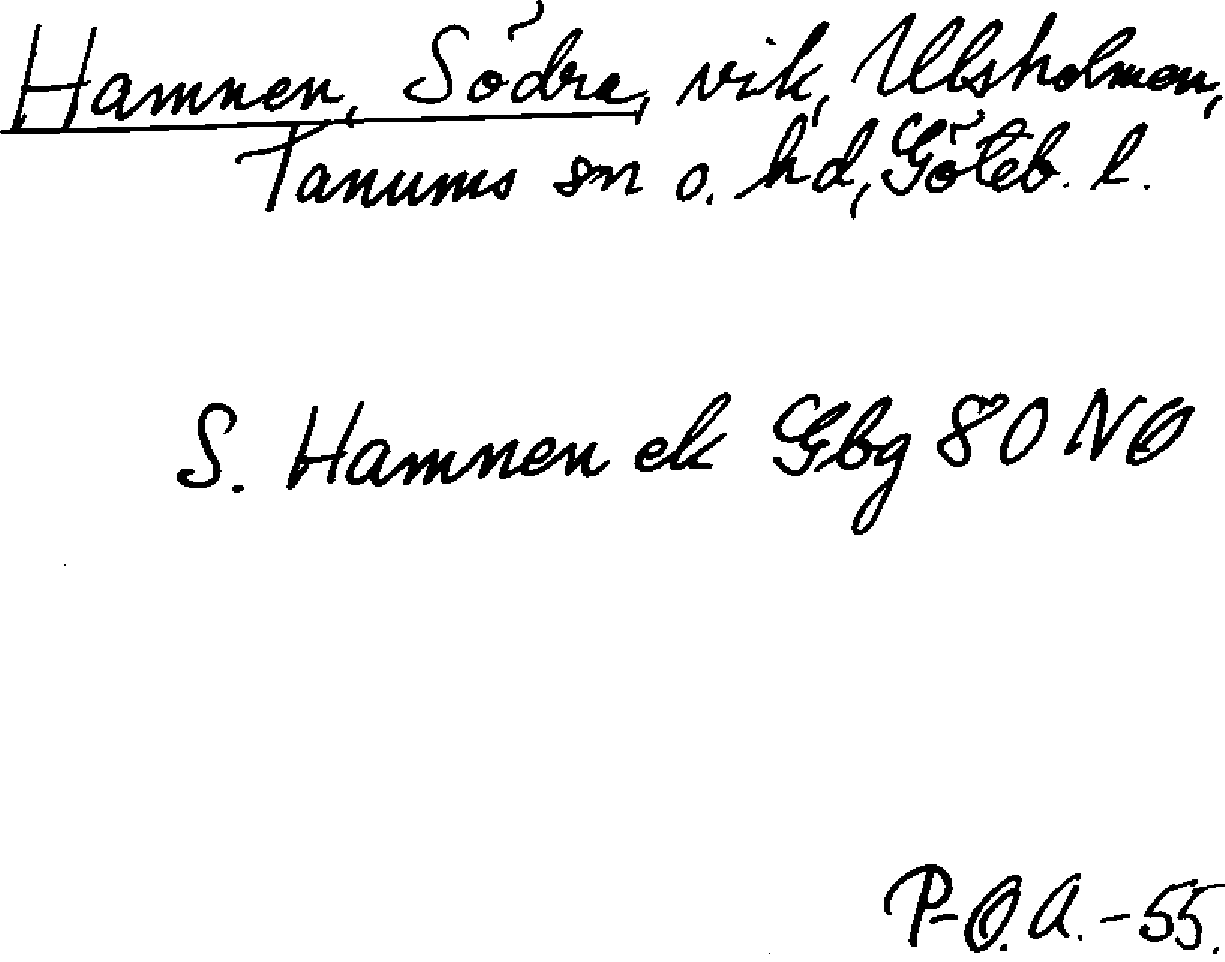 Hamnen, Södra, vik, Ulsholmen,
Tanums sn o. hd, Göteb. l.
S. Hamnen ek Gbg 80 NO
P-O.A.-55.